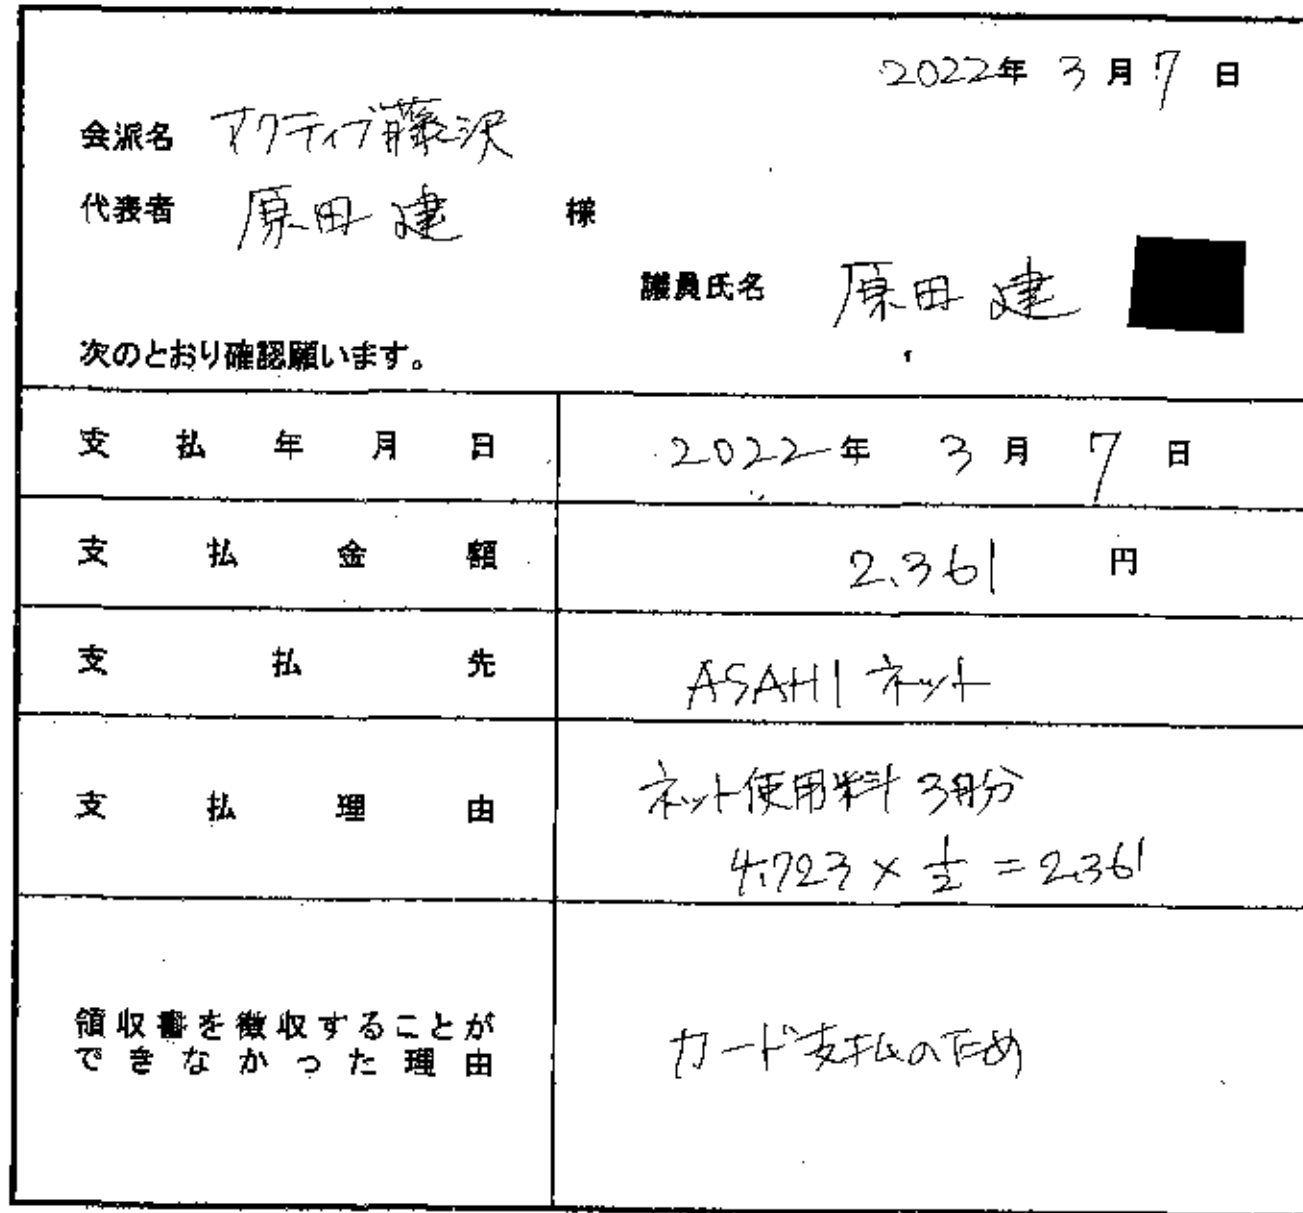 2022年 3月 7日
会派名 アクティブ藤沢
代表者 原田 建 様
議員氏名 原田 建
次のとおり確認願います。
支払年月日 2022年 3月 7日
支払金額 2,361 円
支払先 ASAHI ネット
支払理由 ネット使用料 3月分
4,723 × 1/2 = 2,361
領収書を徴収することが
できなかった理由 カード支払のため